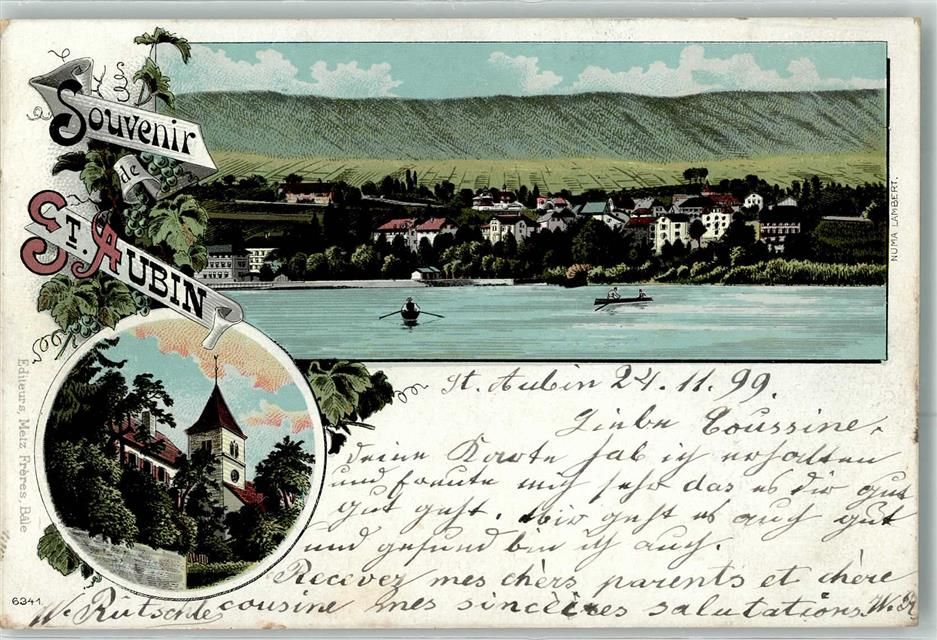 Souvenir
de
St. Aubin
NUMA LAMBERT.
Editeurs, Metz Frères, Bâle
6341
St. Aubin 24. 11. 99.
Liebe Coussine,
deine Karte hab ich erhalten
und freute mich sehr das es dir gut
gut geht. Mir geht es auch gut
und gesund bin ich auch.
Recevez mes chèrs parents et chère
cousine mes sincères salutations W. R
W. Rütschle